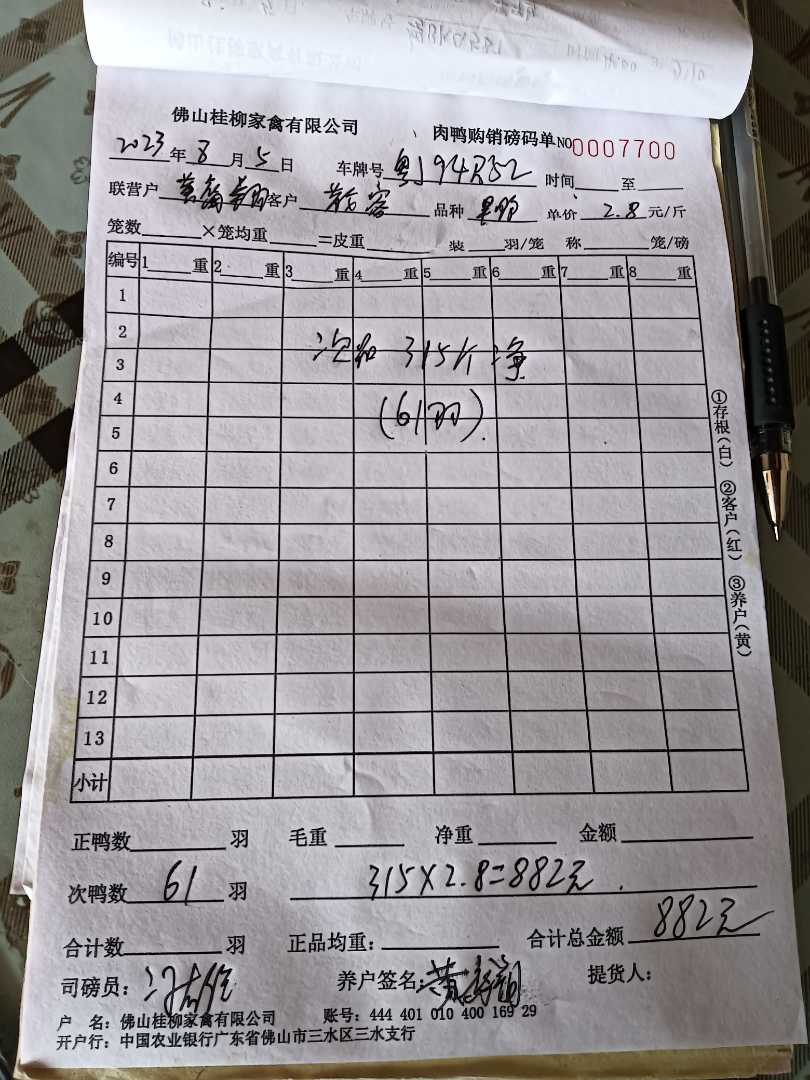 佛山桂柳家禽有限公司 肉鸭购销磅码单 NO 0007700
2023年8月5日 车牌号 粤J94R52 时间 至
联营户 客户 品种 单价 2.8 元/斤
笼数 ×笼均重 =皮重 装 羽/笼 称 笼/磅
编号 1 重 2 重 3 重 4 重 5 重 6 重 7 重 8 重
1
2
315斤 净
3
4
(61羽)
5
6
7
8
9
10
11
12
13
小计
①存根(白) ②客户(红) ③养户(黄)
正鸭数 羽 毛重 净重 金额
次鸭数 61 羽 315×2.8=882元
合计数 羽 正品均重: 合计总金额 882元
司磅员: 养户签名: 提货人:
户 名: 佛山桂柳家禽有限公司 账号: 444 401 010 400 169 29
开户行: 中国农业银行广东省佛山市三水区三水支行